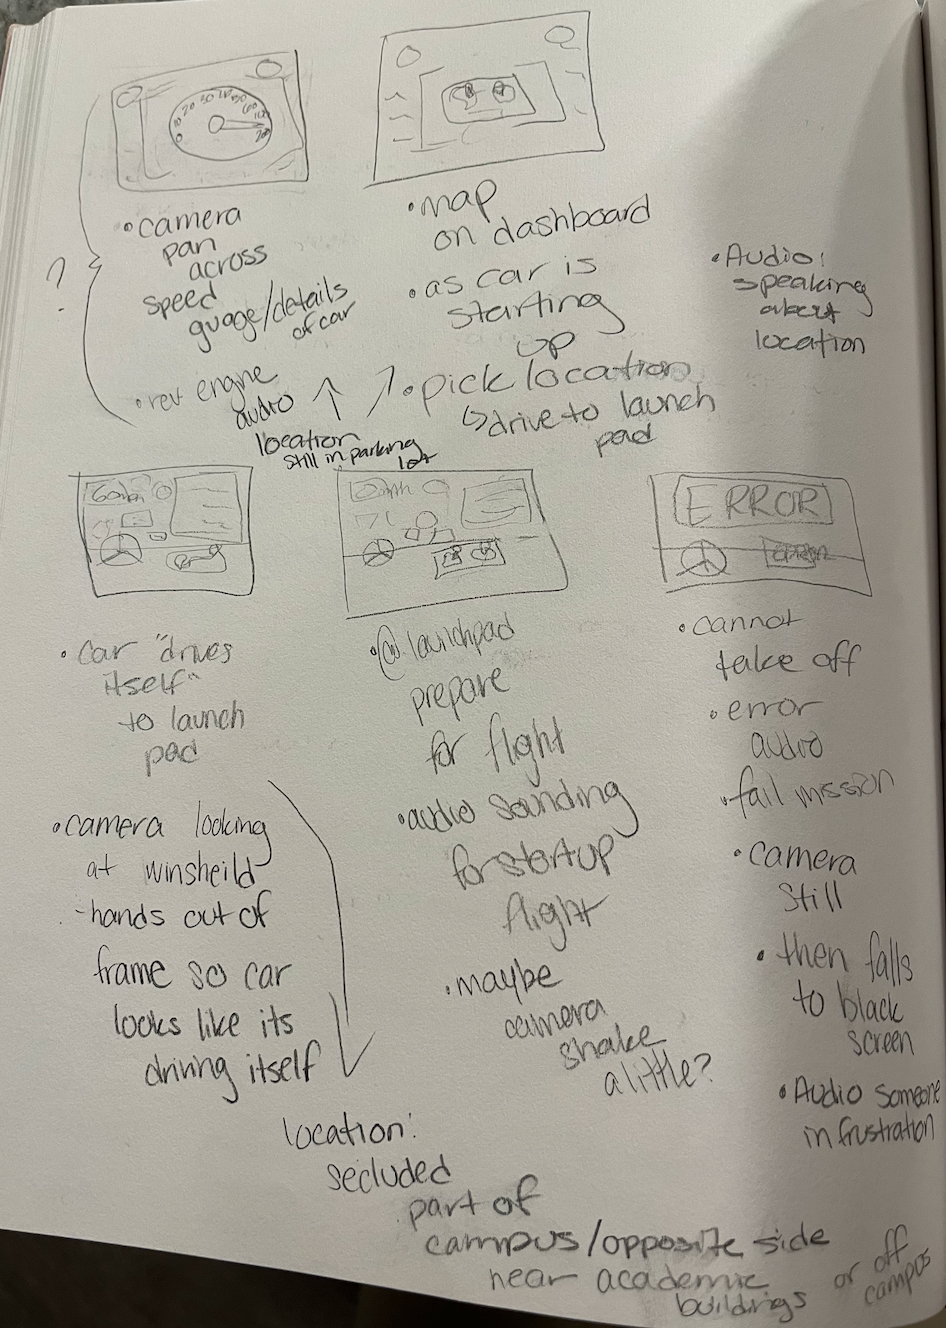 0 10 20 30
200
• camera
pan
across
speed
guage/details
of car
?
• rev engine
audio
location
still in parking
lot
• map
on dashboard
• as car is
starting
up
• pick location
↳ drive to launch
pad
• Audio:
speaking
about
location
ERROR
• car "drives
itself"
to launch
pad
• camera looking
at winsheild
- hands out of
frame so car
looks like its
driving itself
• @ launchpad
prepare
for flight
• audio sounding
for startup
flight
• maybe
camera
shake
a little?
• cannot
take off
• error
audio
• fail mission
• camera
still
• then falls
to black
screen
• Audio someone
in frustration
location:
secluded
part of
campus/opposite side
near academic
buildings
or off
campus